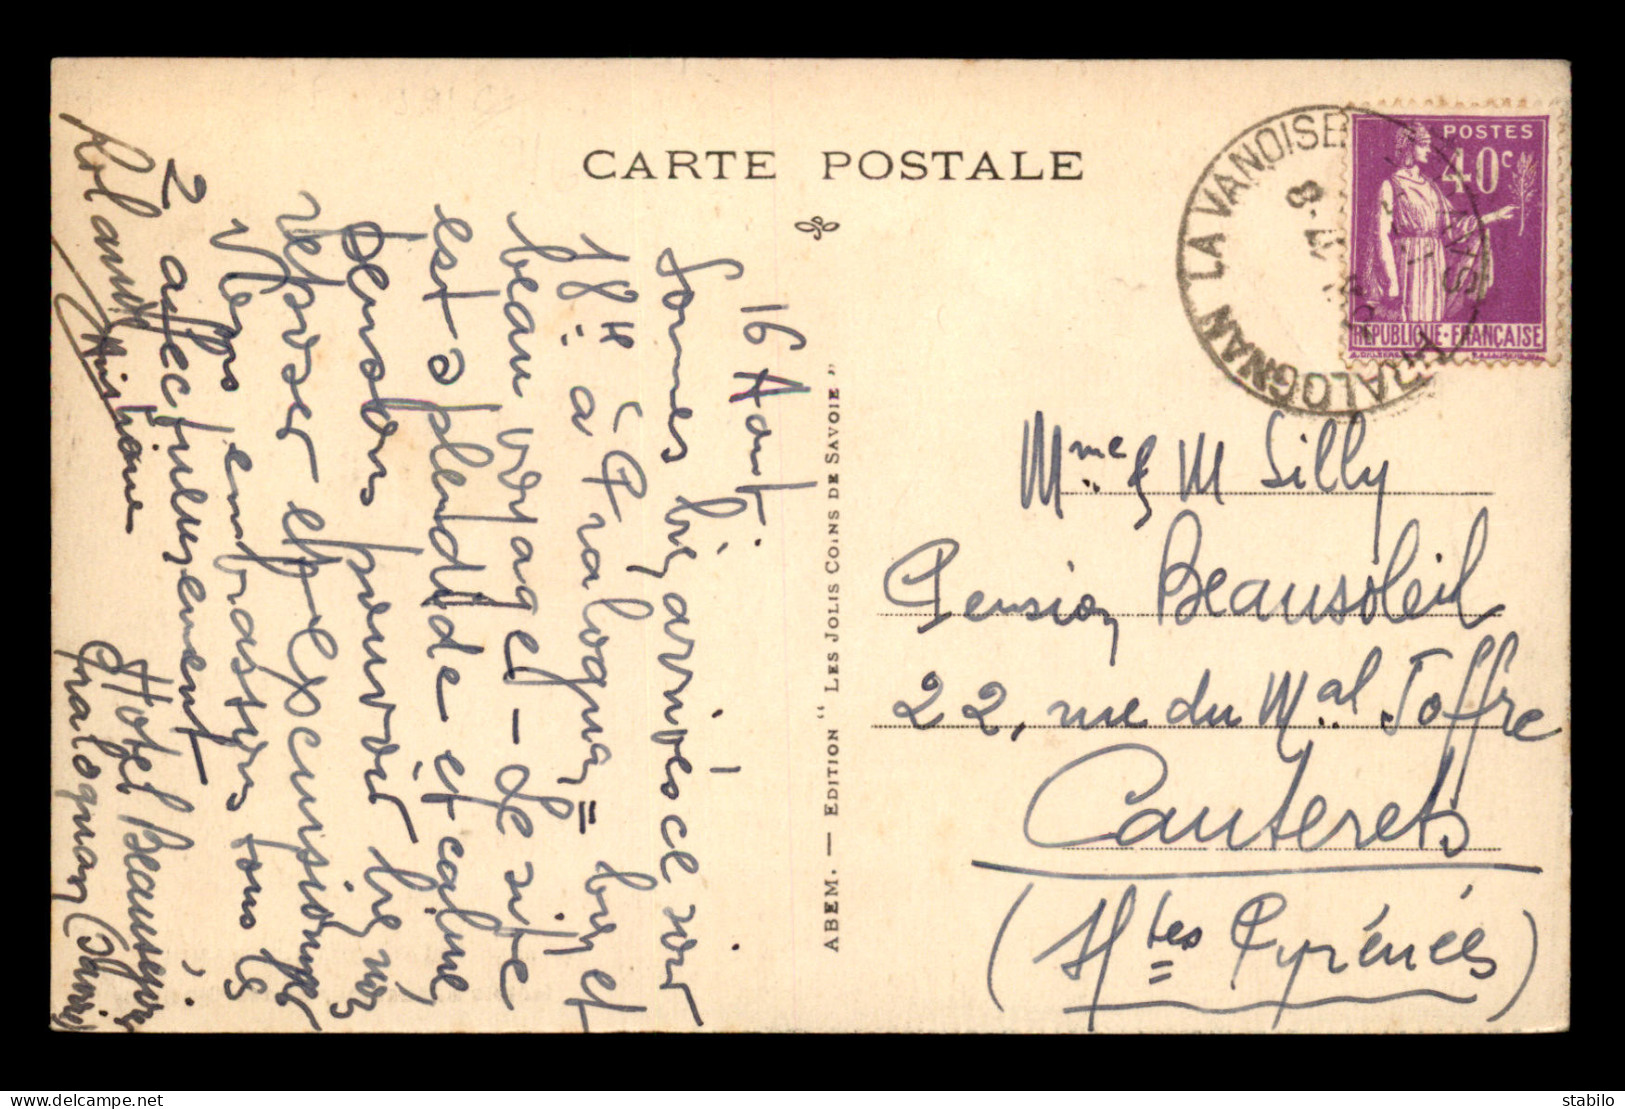 CARTE POSTALE
POSTES
40c
REPUBLIQUE·FRANÇAISE
PRALOGNAN LA VANOISE
SAVOIE
ABEM. — EDITION "LES JOLIS COINS DE SAVOIE"
16 Aout
Sommes bien arrivés ce soir
18H à Pralognan = bon et
beau voyage — Le site
est splendide et calme,
pensons pouvoir bien nous
reposer et excursionner
Nous embrassons tous les
2 affectueusement
Rolande
Christiane
Hotel Beauséjour
Pralognan (Savoie)
Mme & M Silly
Pension Beausoleil
22, rue du Mal Joffre
Cauterets
(Htes Pyrénées)
delcampe.net
stabilo